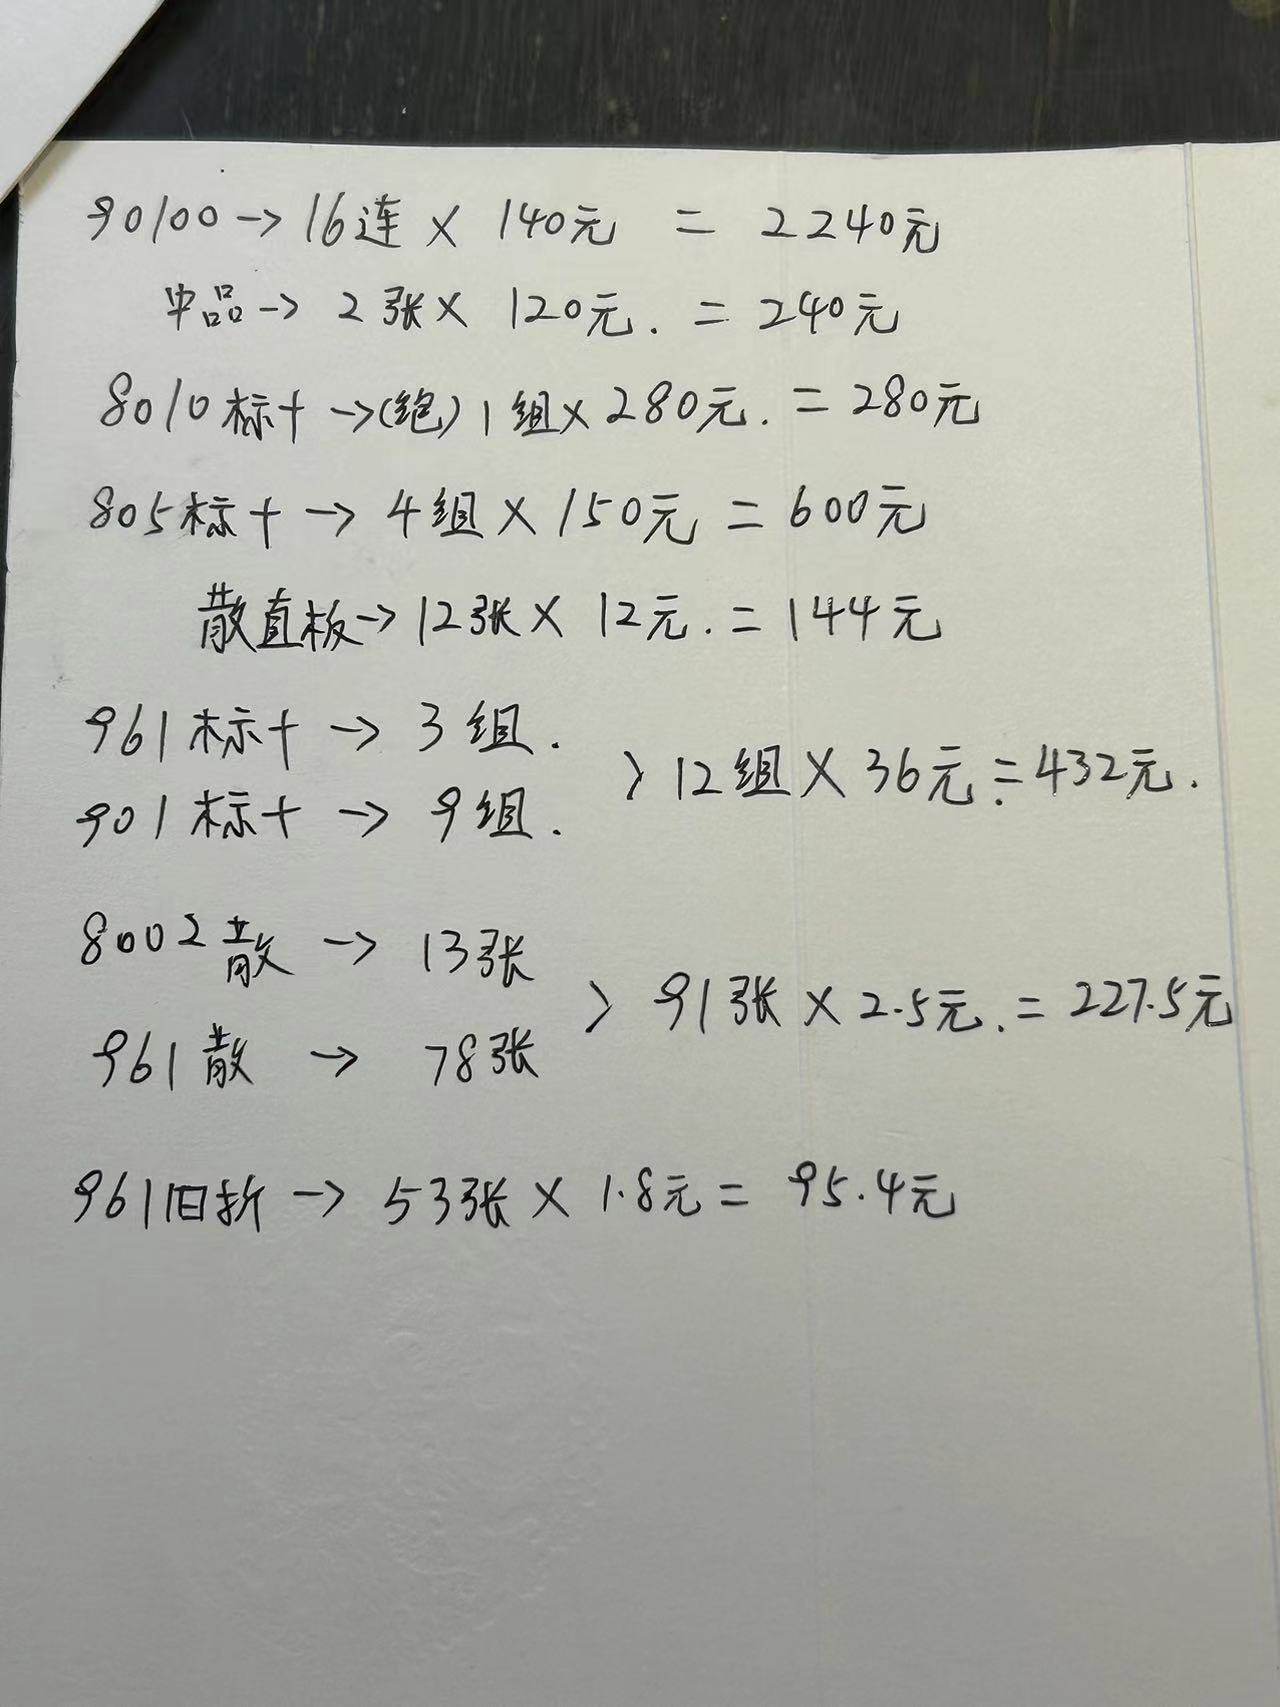 90100→16连×140元=2240元
中品→2张×120元.=240元
8010标十→(绝)1组×280元.=280元
805标十→4组×150元=600元
散直板→12张×12元.=144元
961标十→3组.
901标十→9组.
>12组×36元=432元.
8002散→13张
961散→78张
>91张×2.5元.=227.5元
961旧折→53张×1.8元=95.4元